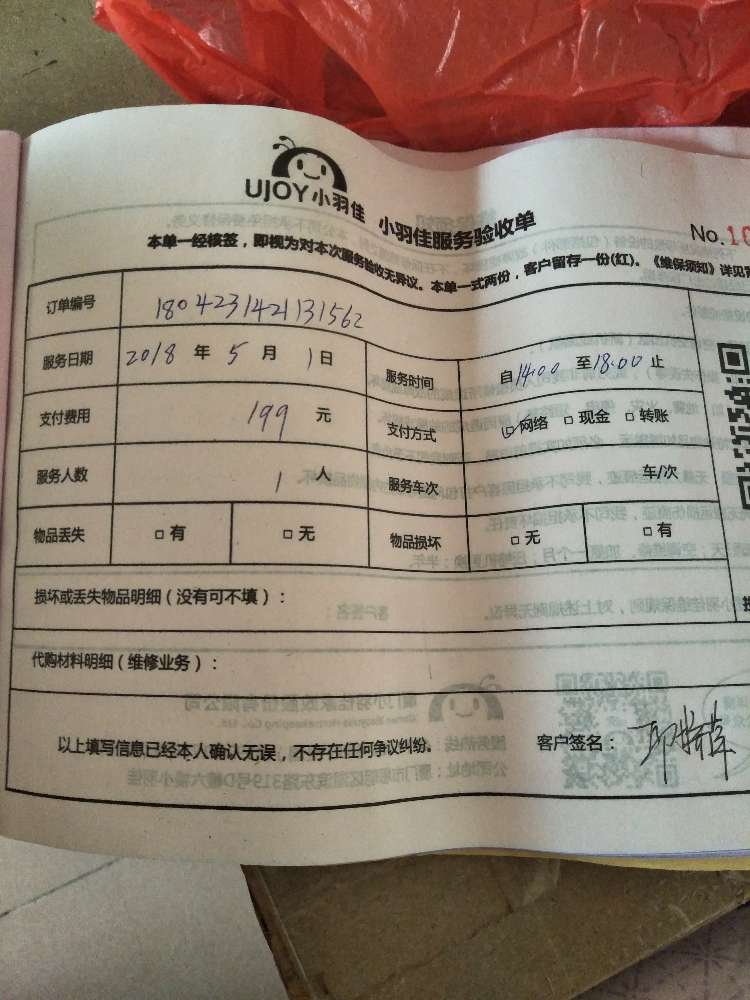 UJOY小羽佳 小羽佳服务验收单
No.10
本单一经核签，即视为对本次服务验收无异议。本单一式两份，客户留存一份(红)。《维保须知》详见
订单编号 1804231421131562
服务日期 2018 年 5 月 1 日 服务时间 自 14:00 至 18:00 止
支付费用 199 元 支付方式 ☑ 网络 □ 现金 □ 转账
服务人数 1 人 服务车次 车/次
物品丢失 □ 有 □ 无 物品损坏 □ 无 □ 有
损坏或丢失物品明细（没有可不填）：
代购材料明细（维修业务）：
以上填写信息已经本人确认无误，不存在任何争议纠纷。 客户签名：